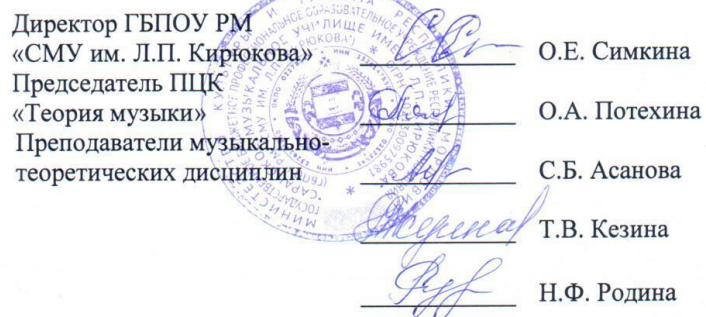 Директор ГБПОУ РМ
«СМУ им. Л.П. Кирюкова» О.Е. Симкина
Председатель ПЦК
«Теория музыки» О.А. Потехина
Преподаватели музыкально-
теоретических дисциплин С.Б. Асанова
Т.В. Кезина
Н.Ф. Родина